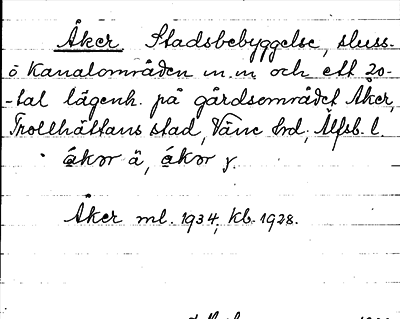 Åker Stadsbebyggelse, sluss-
o kanalområden m.m och ett 20-
-tal lägenh. på gårdsområdet Åker,
Trollhättans stad, Väne hrd, Älfsb. l.
åkər ä, åkər y.
Åker ml. 1934, kb. 1928.